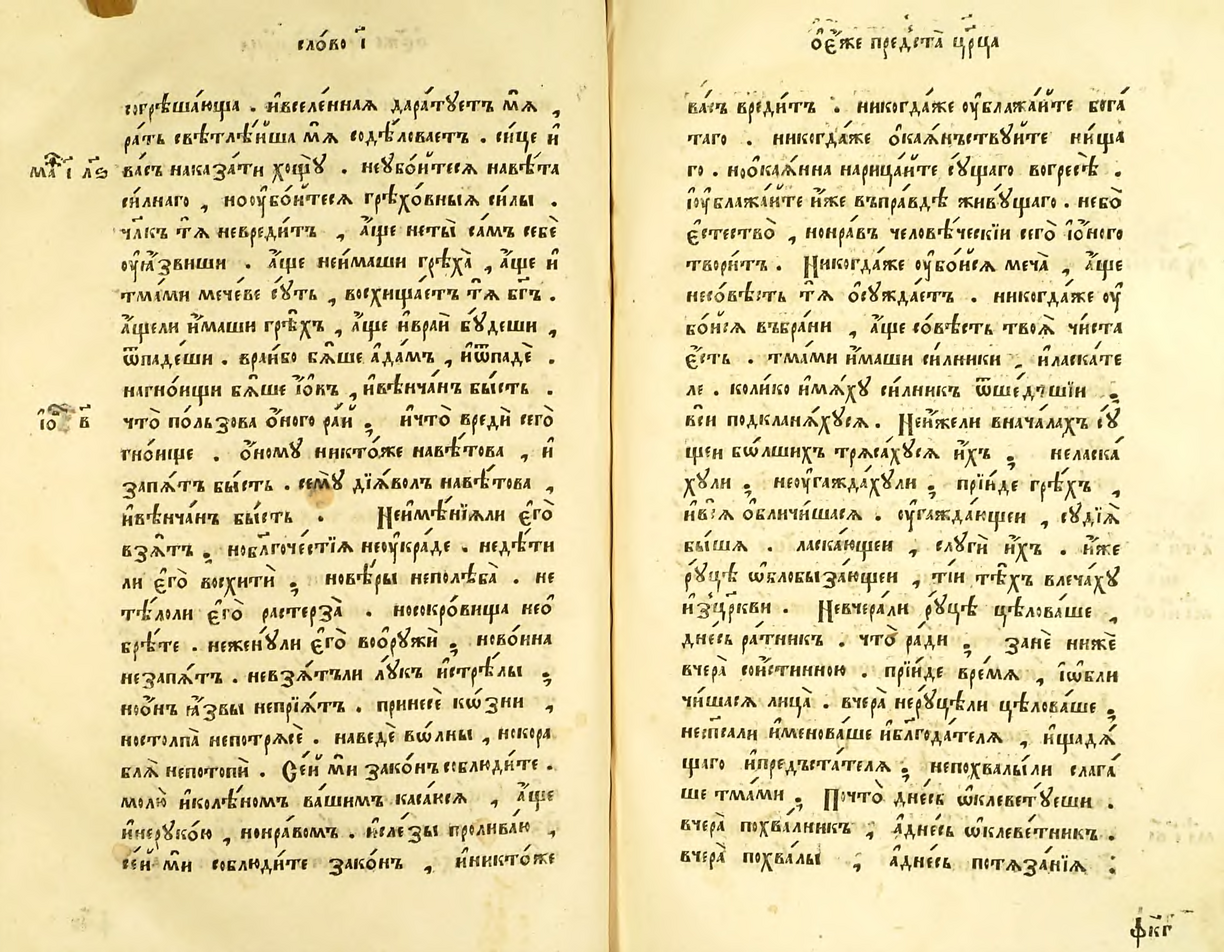 сло́во і҃
согрѣша́юща . и҆вселе́ннаѧ дарату́етъ мѧ̀ ,
ра́ть свѣтлѣ́йша мѧ̀ содѣ́ловаетъ . си́це и҆
ма і҃ л҃ѕ
ва́съ наказа́ти хощꙋ̀ . неꙋбо́йтесѧ навѣ́та
си́лнаго , ноᲂу҆бо́йтесѧ грѣхо́вныѧ си́лы .
чл҃къ тѧ̀ невреди́тъ , а҆́ще неты̀ са́мъ себѐ
ᲂу҆ꙗ҆́звиши . а҆́ще неи҆́маши грѣха̀ , а҆́ще и҆
тма́ми мече́ве сꙋ́ть , восхища́етъ тѧ̀ бг҃ъ .
а҆́щели и҆́маши грѣ́хъ , а҆́ще и҆вра́й бꙋ́деши ,
ѿпаде́ши . вра́йбо бѧ́ше а҆да́мъ , и҆ѿпадѐ .
нагно́ищи бѧ́ше і҆́овъ , и҆вѣнча́нъ бы́сть .
і҆о в҃
что̀ по́льзова ѻ҆́ного ра́й ; и҆что̀ вредѝ сего̀
гно́ище . ѻ҆́номꙋ никто́же навѣ́това , и҆
запѧ́тъ бы́сть . семꙋ̀ дїѧ́волъ навѣ́това ,
и҆вѣнча́нъ бы́сть . Неи҆мѣ́нїѧли є҆гѡ̀
взѧ́тъ ; ноблг҃оче́стїѧ неᲂу҆кра́де . недѣ́ти
ли є҆го̀ восхи́ти ; новѣ́ры неполѣ́ба . не
тѣ́лоли є҆го̀ растерза̀ . носокро́вища нео҆
брѣ́те . неженꙋ́ли є҆го̀ воѻ҆рꙋжѝ ; ново́ина
незапѧ́тъ . невзѧ́тъли лꙋ́къ и҆стрѣ́лы ;
ноѻ҆́нъ ꙗ҆́звы непрїѧ́тъ . принесѐ кѡ́зни ,
ностолпа̀ непотрѧсѐ . наведѐ вѡ́лны , искора
блѧ̀ непотопѝ . Се́й мѝ зако́нъ соблюди́те .
молю̀ и҆колѣ́номъ ва́шимъ каса́юсѧ , а҆́ще
и҆нерꙋко́ю , нонра́вомъ . и҆сле́зы пролива́ю ,
се́й мѝ соблюди́те зако́нъ , и҆никто́же
ѻ҆є҆́же предста̀ цр҃ца
ва́съ вреди́тъ . никогда́же ᲂу҆блажа́йте бога́
таго . никогда́же ѻ҆каѧ́нъствꙋйте ни́ща
го . ноѻ҆каѧ́нна нарица́йте сꙋ́щаго вогресѣ̀ .
і҆ᲂу҆блажа́йте и҆́же въпра́вдѣ живꙋ́щаго . небо̀
є҆стество̀ , нонра́въ человѣ́ческїи сего̀ і҆ѻ҆́ного
твори́тъ . Никогда́же ᲂу҆бо́йсѧ меча̀ , а҆́ще
несо́вѣсть тѧ̀ ѻ҆сꙋжда́етъ . никогда́же ᲂу҆
бо́йсѧ въбра́ни , а҆́ще со́вѣсть твоѧ̀ чи́ста
є҆́сть . тма́ми и҆́маши си́лники ; и҆ласка́те
ле . коли́ко и҆мѧ́хꙋ си́лникъ ѿше́дъшїи ;
всѝ подкланѧ́хꙋсѧ . Неи҆́жели внача́лахъ сꙋ́
щеи бѡ́лшихъ трѧса́хꙋсѧ и҆́хъ ; неласка́
хꙋли ; неꙋгажда́хꙋли ; прїи́де грѣ́хъ ,
и҆всѧ̀ ѻ҆бличи́шасѧ . ᲂу҆гажда́ющеи , сꙋдїѧ̀
бы́шѧ . ласка́ющеи , слꙋгѝ и҆́хъ . и҆́же
рꙋ́цѣ ѡ҆блобыза́ющеи , ті́и тѣ́хъ влеча́хꙋ
и҆зцр҃кви . Невчера́ли рꙋ́цѣ цѣлова́ше ,
дне́сь ра́тникъ . что̀ ра́ди ; занѐ нижѐ
вчера̀ сои́стинною . прїи́де вре́мѧ , і҆ѡ҆бли
чи́шасѧ лица̀ . вчера̀ нерꙋ́цѣли цѣлова́ше ;
несп҃сали и҆менова́ше и҆благода́телѧ , и҆щадѧ́
щаго и҆предъста́телѧ ; непохвалы́ли слага́
ше тма́ми ; Почто̀ дне́сь ѡ҆клевету́еши .
вчера̀ похва́лникъ , а҆дне́сь ѡ҆клевѐтникъ .
вчера̀ похвалы̀ , а҆дне́сь потѧза́нїѧ ;
ф҃кг